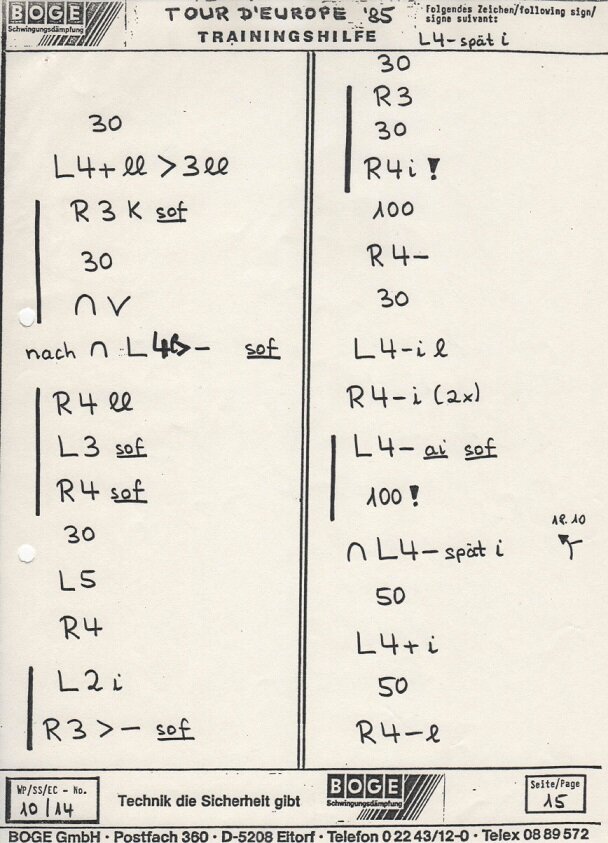 BOGE
Schwingungsdämpfung
TOUR D'EUROPE '85
TRAININGSHILFE
Folgendes Zeichen/following sign/
signe suivant:
L4-spät i
30
L4+ ll > 3 ll
R3 K sof
30
∩ V
nach ∩ L4 > - sof
R4 ll
L3 sof
R4 sof
30
L5
R4
L2 i
R3 > - sof
30
R3
30
R4 i !
100
R4-
30
L4-i l
R4-i (2x)
L4- ai sof
100 !
18.10
∩ L4-spät i
50
L4+ i
50
R4-l
WP/SS/EC - No.
10/14
Technik die Sicherheit gibt
BOGE
Schwingungsdämpfung
Seite/Page
15
BOGE GmbH · Postfach 360 · D-5208 Eitorf · Telefon 0 22 43/12-0 · Telex 08 89 572